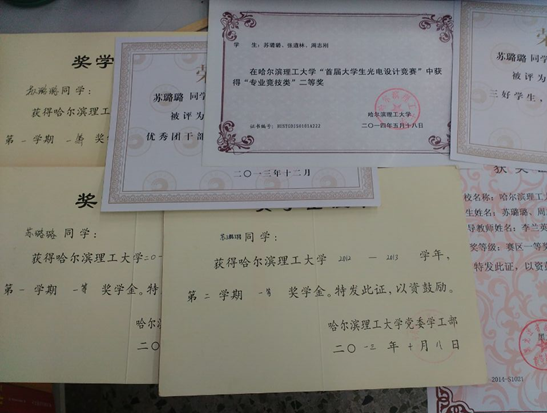 奖学
苏璐璐同学：
获得哈尔滨理工大
第一学期 一等 奖学
苏璐璐 同学
被评为
优秀团干部
二〇一三年十二月
学 生：苏璐璐、张道林、周志刚
在哈尔滨理工大学“首届大学生光电设计竞赛”中获
得“专业竞技类”二等奖
哈尔滨理工大学
二〇一四年五月十八日
同学
被评为
三好学生，
奖
苏璐璐 同学：
获得哈尔滨理工大学
第一学期 一等 奖学金。特
哈尔滨
二〇一
同学：
获得哈尔滨理工大学 2012 — 2013 学年，
第二学期 一等 奖学金。特发此证，以资鼓励。
哈尔滨理工大学党委学工部
二〇一三年十月八日
获奖
校名称：哈尔滨理
生姓名：苏璐璐、周
导教师姓名：李兰英
奖等级：赛区一等奖
特发此证，以资鼓
2014-S1021